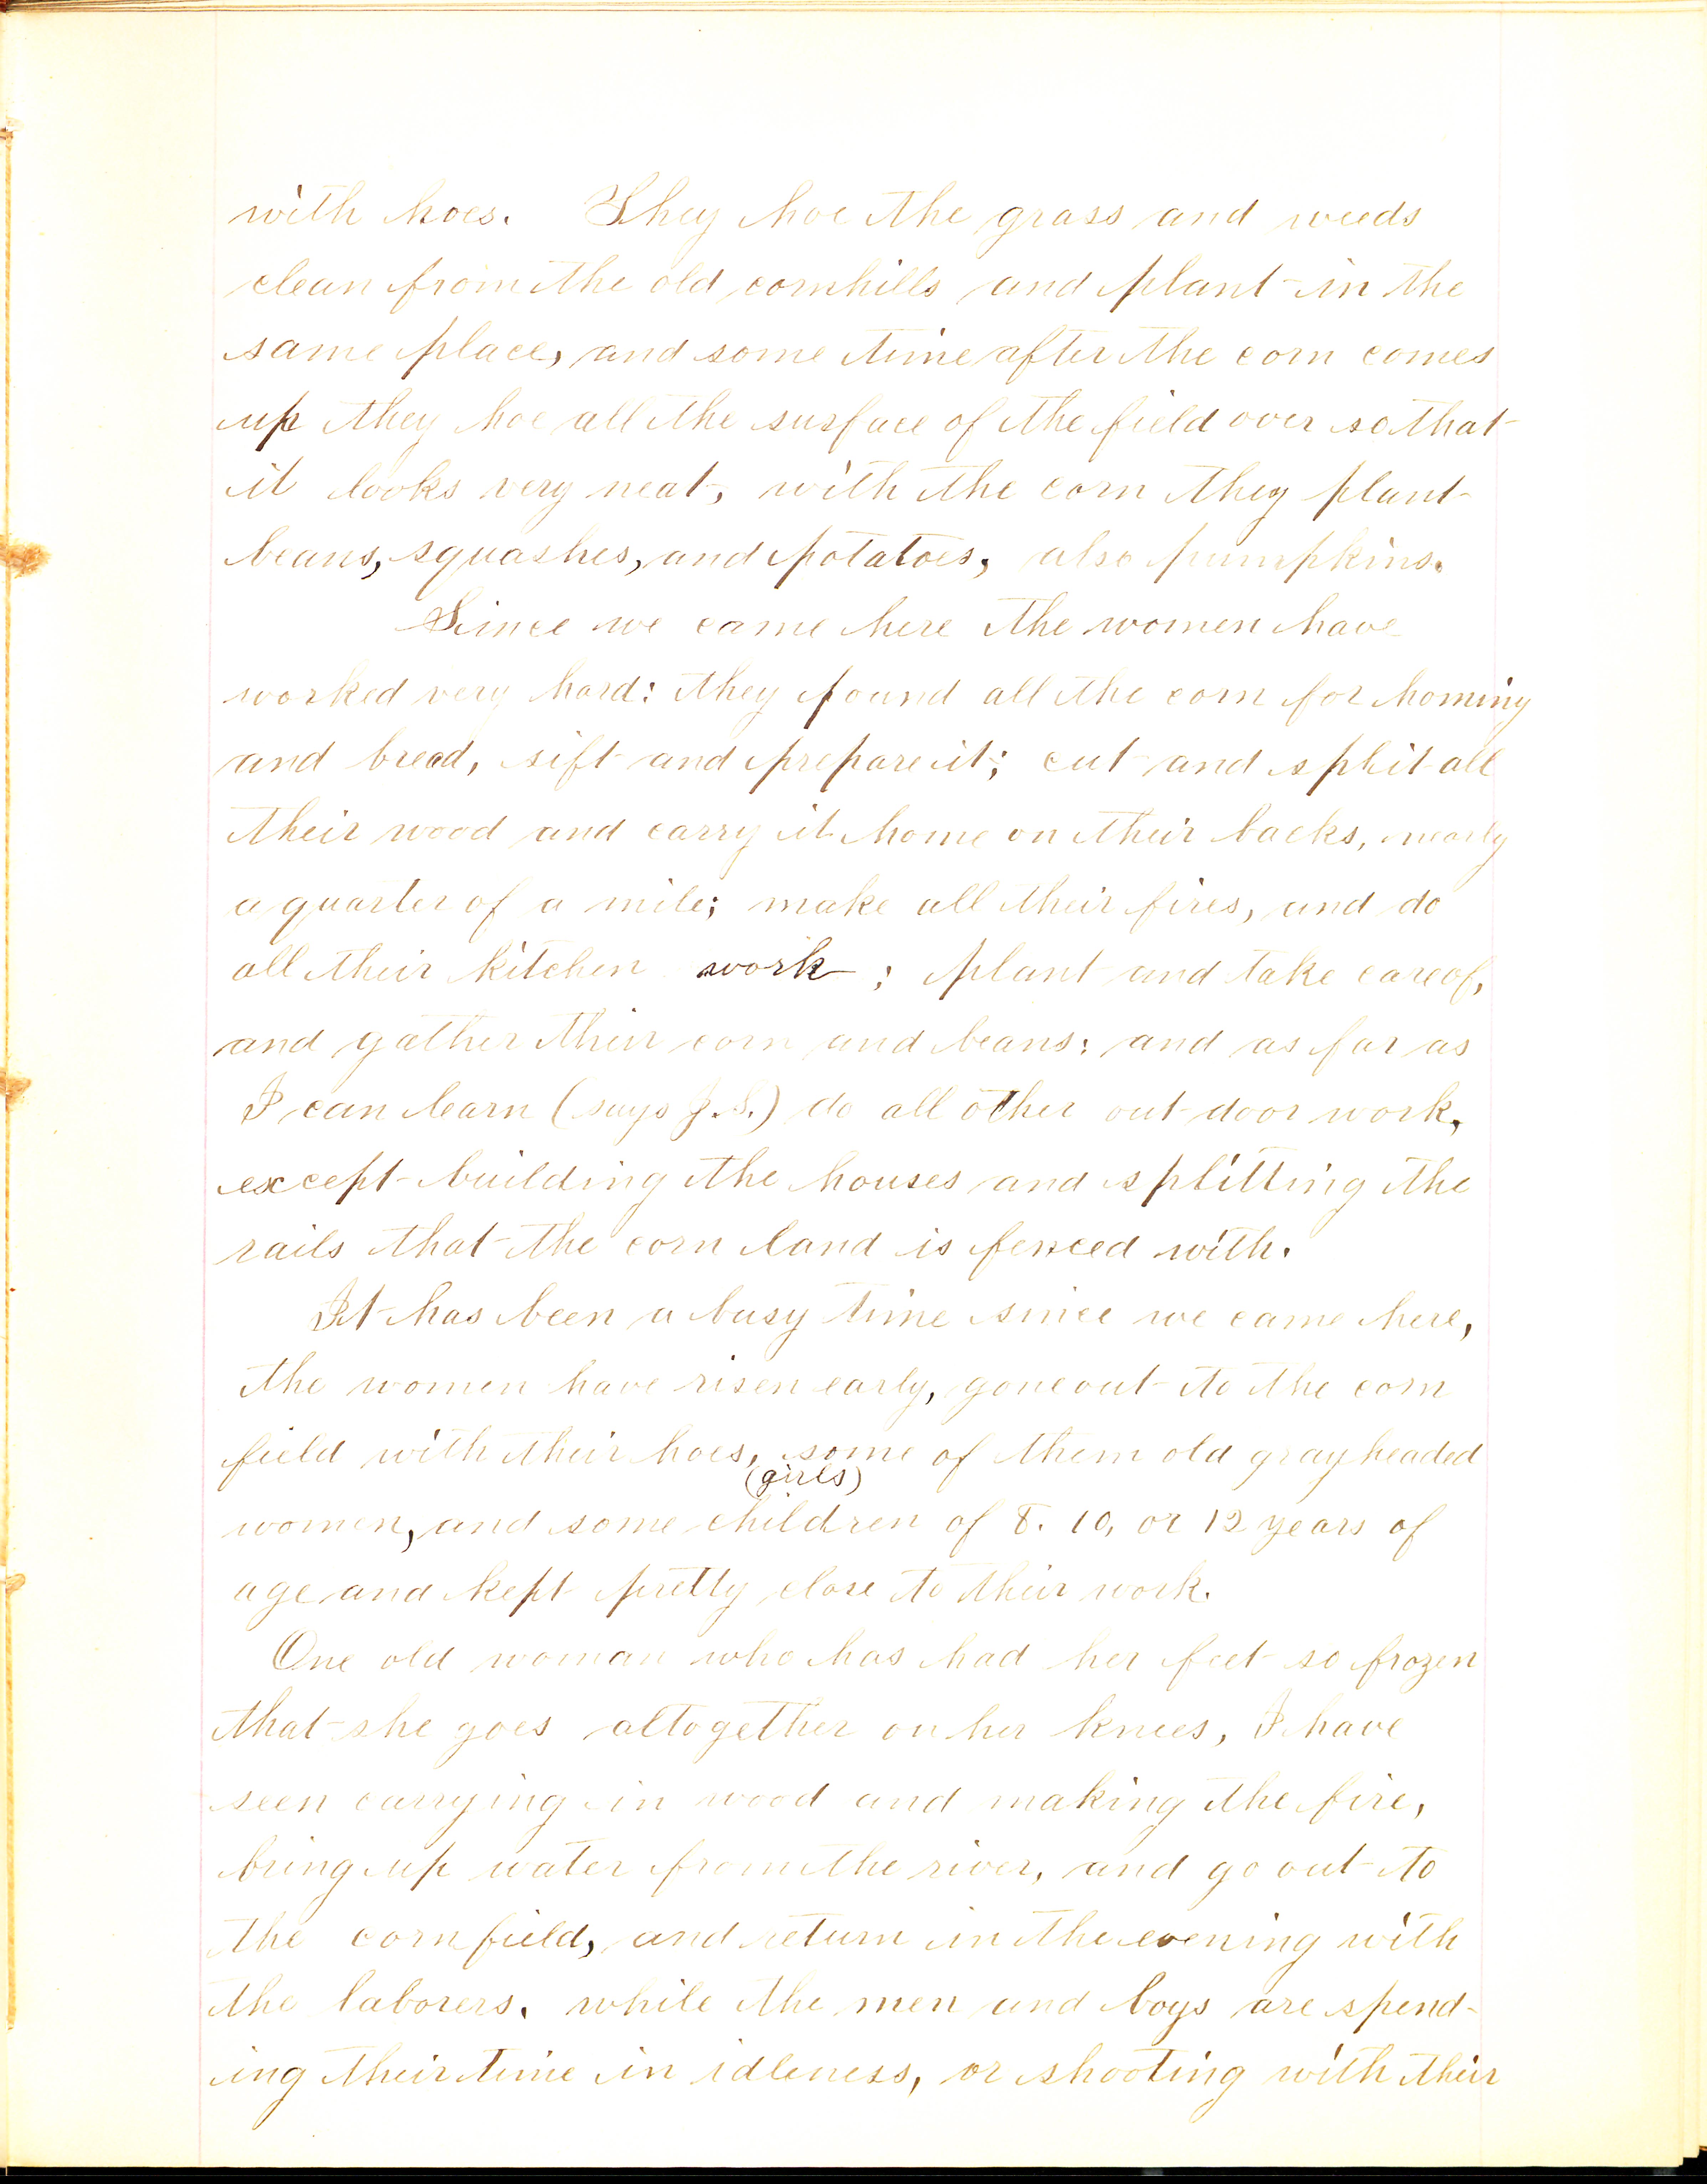 with hoes. They hoe the grass and weeds
clean from the old cornhills and plant in the
same place, and some time after the corn comes
up they hoe all the surface of the field over so that
it looks very neat, with the corn they plant
beans, squashes, and potatoes, also pumpkins.
Since we came here the women have
worked very hard: they pound all the corn for hominy
and bread, sift and prepare it; cut and split all
their wood and carry it home on their backs, nearly
a quarter of a mile; make all their fires, and do
all their kitchen work; plant and take care of,
and gather their corn and beans: and as far as
I can learn (says J.S.) do all other out door work,
except building the houses and splitting the
rails that the corn land is fenced with.
It has been a busy time since we came here,
the women have risen early, gone out to the corn
field with their hoes, some of them old gray headed
(girls)
women, and some children of 8. 10, or 12 years of
age and kept pretty close to their work.
One old woman who has had her feet so frozen
that she goes altogether on her knees, I have
seen carrying in wood and making the fire,
bring up water from the river, and go out to
the cornfield, and return in the evening with
the laborers. while the men and boys are spend-
ing their time in idleness, or shooting with their